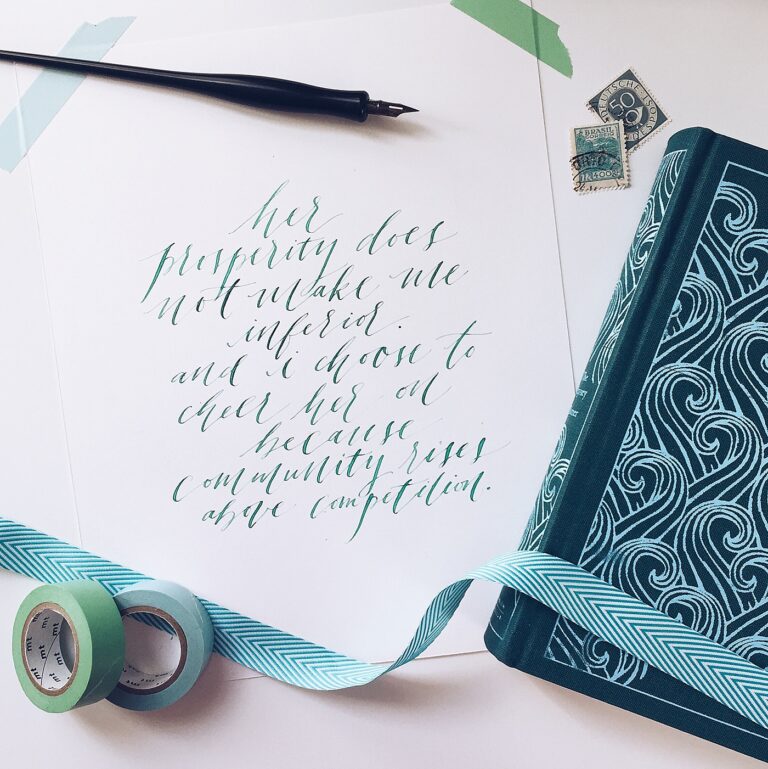 her
prosperity does
not make me
inferior.
and i choose to
cheer her on
because
community rises
above competition.
50
BRASIL
CORREIO
mt
mt
mt